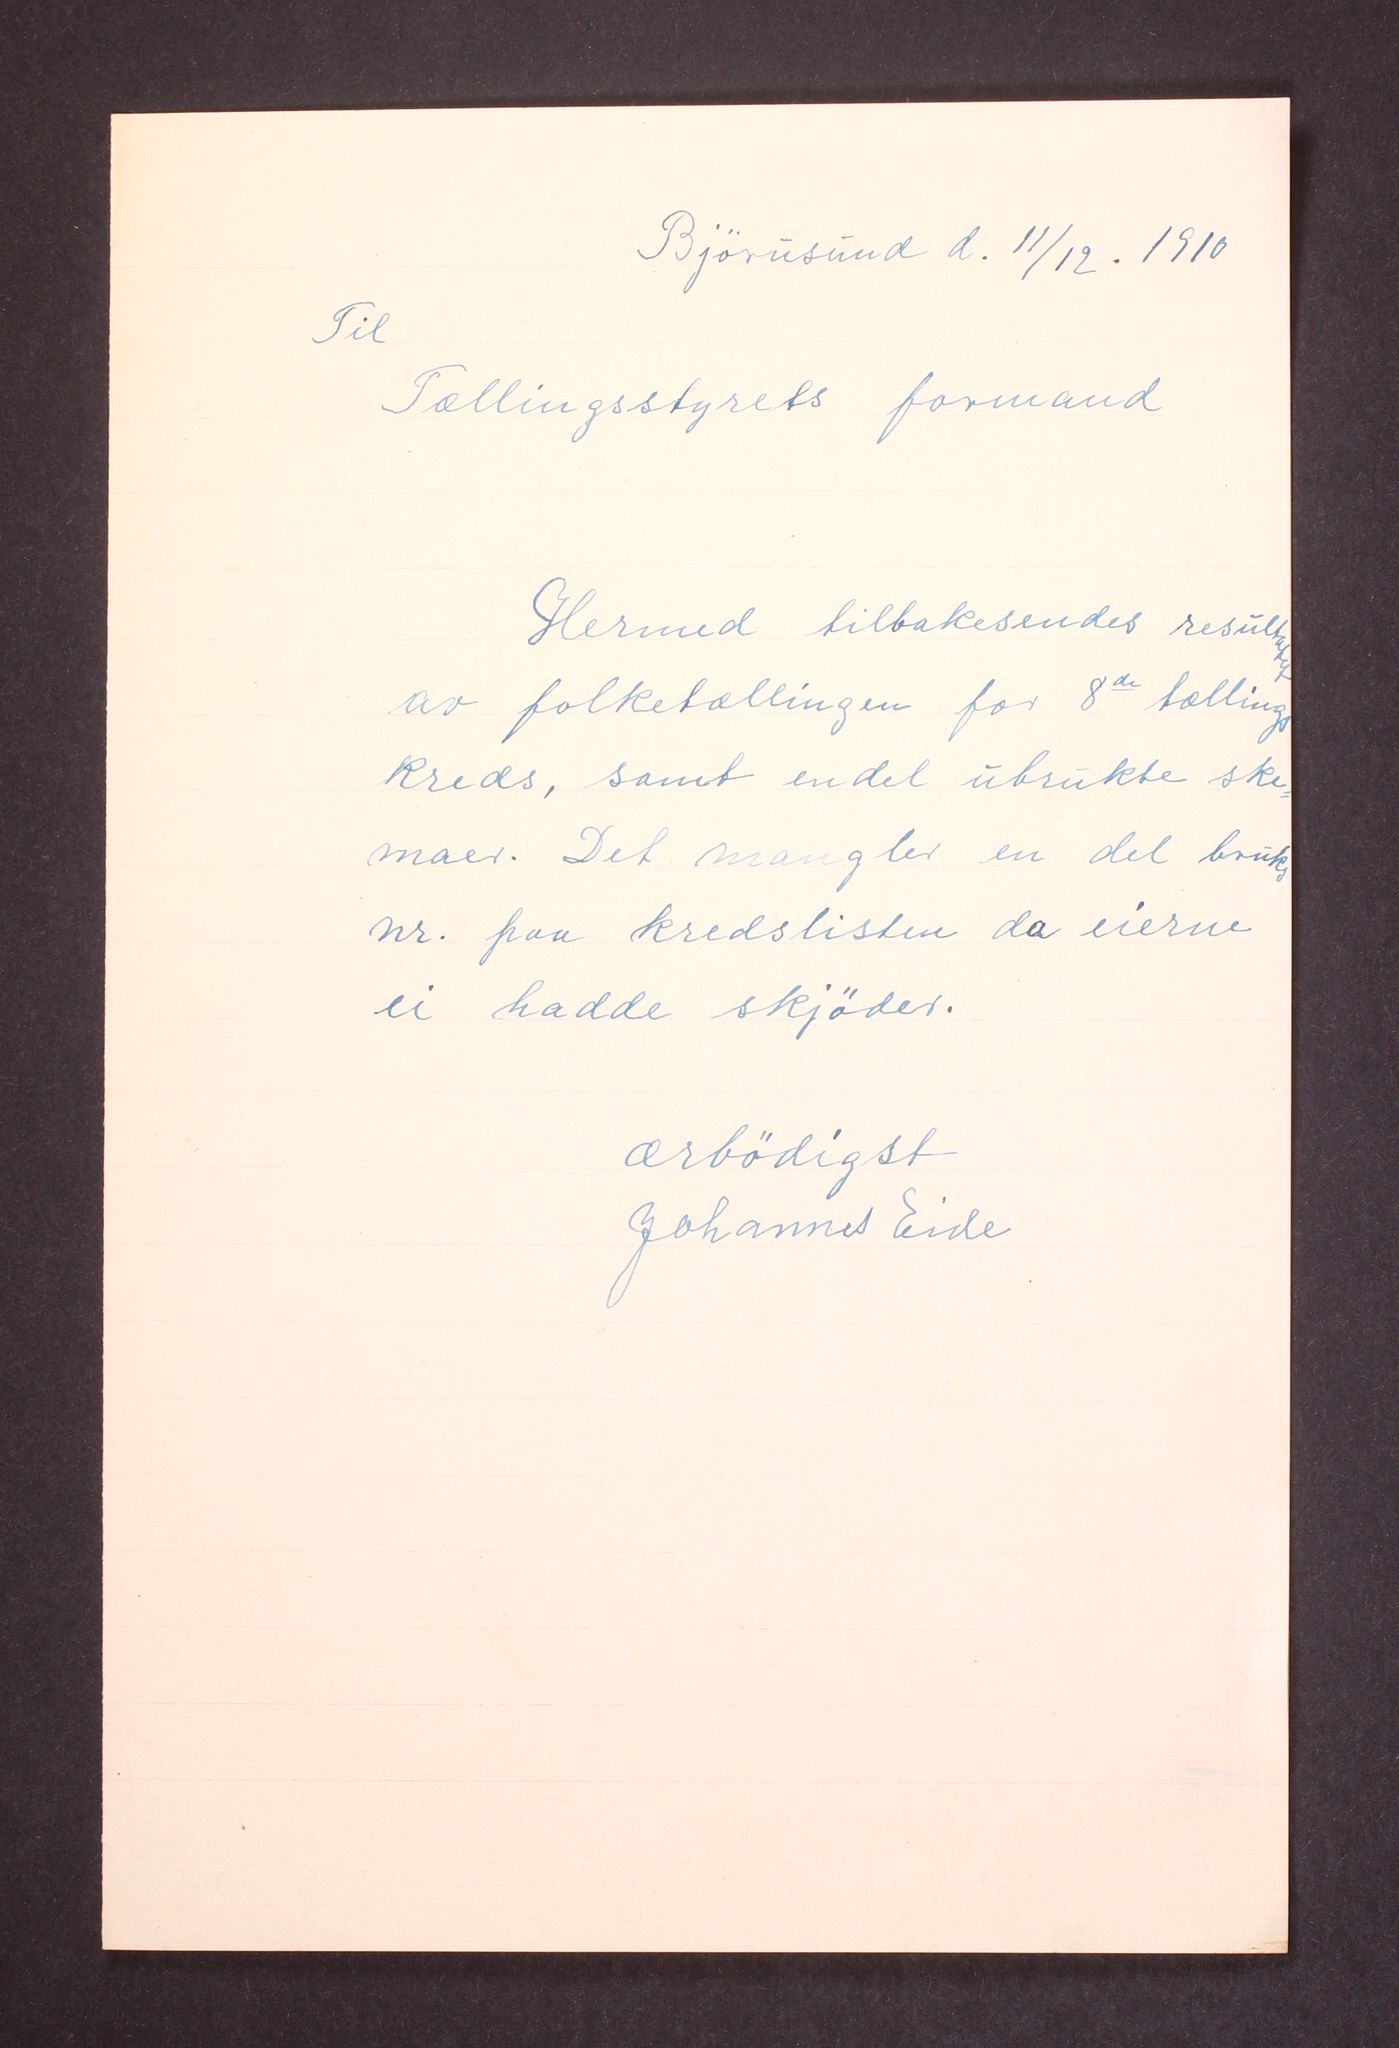 Björnsund d. 11/12. 1910
Til
Tællingsstyrets formand
Hermed tilbakesendes resultatet
av folketællingen for 8de tællings
kreds, samt endel ubrukte ske=
maer. Det mangler en del bruks
nr. paa kredslisten da eierne
ei hadde skjöder.
ærbödigst
Johannes Eide